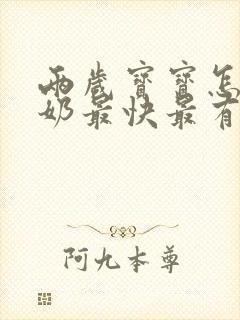 两岁宝宝怎
奶最快最有
阿九本尊